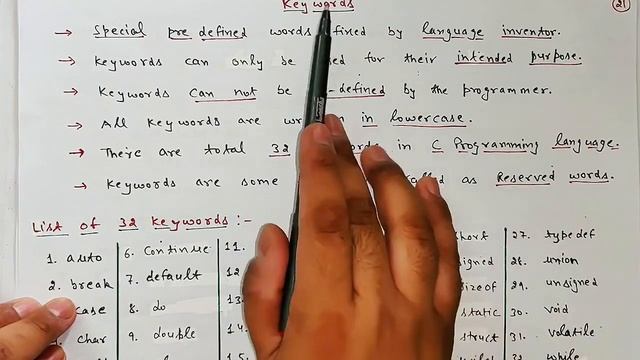 Keywords
21
→ Special pre defined words fined by language inventor.
→ Keywords can only be for their intended purpose.
→ Keywords can not be -defined by the programmer.
→ All Keywords are in lowercase.
→ There are total 32 in C Programming language.
→ Keywords are some as Reserved words.
List of 32 Keywords :-
1. auto
2. break
case
char
6. Continue
7. default
8. do
9. double
11.
12
13
14.
15
short
signed
sizeof
static
struct
27. typedef
28. union
29. unsigned
30. void
31. volatile
32. while